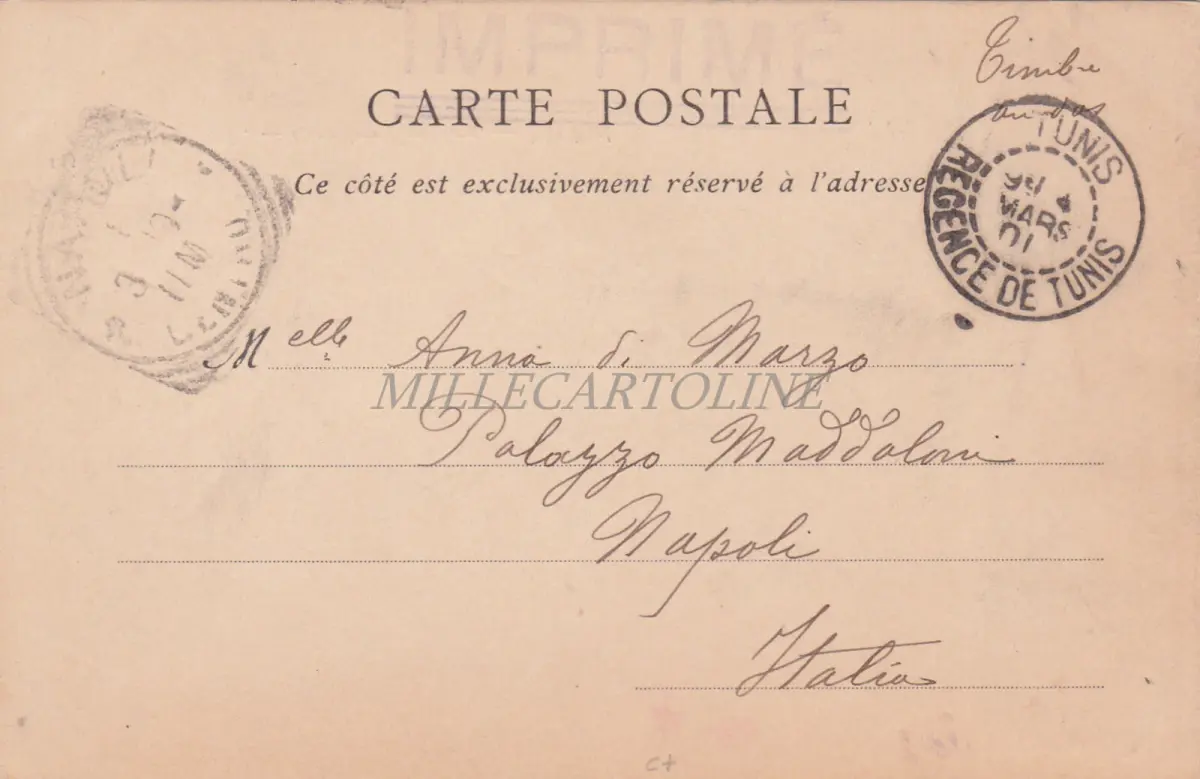 IMPRIMÉ
Timbre
au dos
CARTE POSTALE
Ce côté est exclusivement réservé à l'adresse
TUNIS
MARS
01
REGENCE DE TUNIS
NAPOLI
3
11 M
Melle Anna di Marzo
MILLECARTOLINE
Palazzo Maddaloni
Napoli
Italia
c+